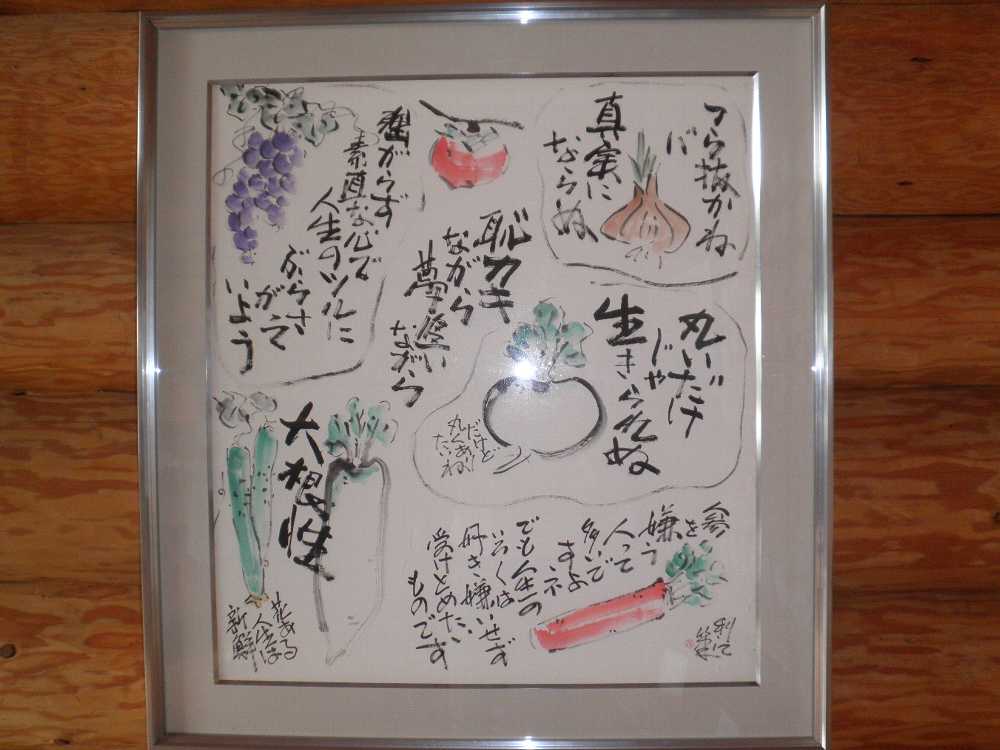 つら抜かね
バ
真実に
ならぬ
丸いだけ
じゃ
生きられぬ
だけど
丸くあり
たいね
恥カキ
ながら
夢追い
ながら
素直な心で
人生のツルに
ぶらさ
がって
いよう
参を
嫌う
人って
多いで
すよネ
でも人生の
好き嫌いせず
受けとめたい
ものです
大根性
花ある
人生は
新鮮